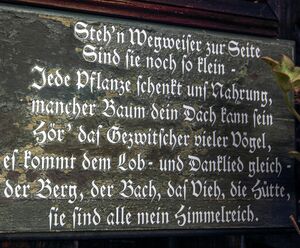 Steh'n Wegweiser zur Seite
Sind sie noch so klein -
Jede Pflanze schenkt uns Nahrung,
mancher Baum dein Dach kann sein
Hör' das Gezwitscher vieler Vögel,
es kommt dem Lob- und Danklied gleich -
der Berg, der Bach, das Vieh, die Hütte,
sie sind alle mein Himmelreich.